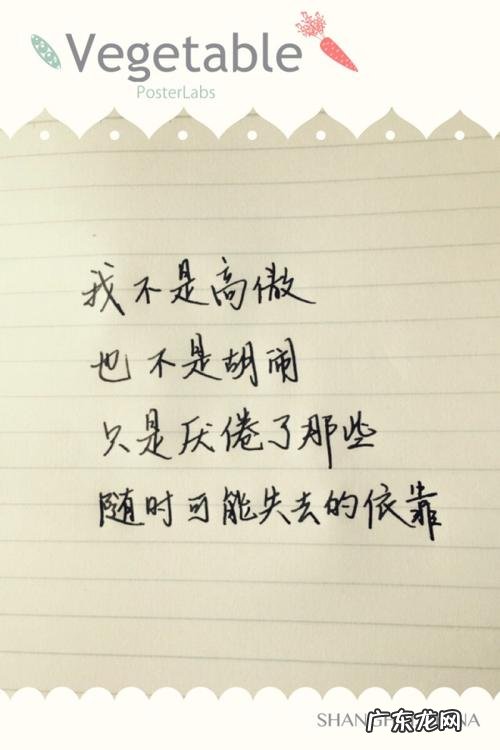 Vegetable
PosterLabs
我不是高傲
也不是胡闹
只是厌倦了那些
随时可能失去的依靠
广东龙网